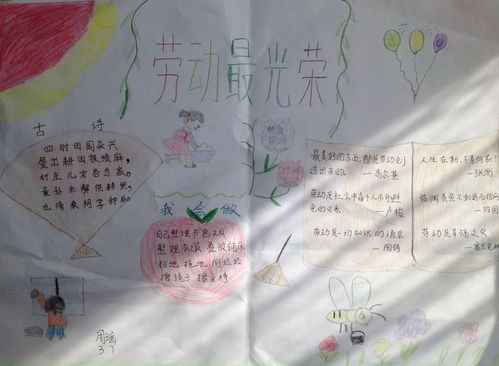 劳动最光荣
古诗
四时田园杂兴
昼出耕田夜绩麻,
村庄儿女各当家。
童孙未解供耕织,
也傍桑阴学种瓜
我会做
自己整理书包文具
整理衣服 叠被铺床
扫地 拖地 倒垃圾
擦镜子 擦桌椅
最美好的东西,都是劳动创
造出来的。 —高尔基
劳动是社会中每个人不可避
免的义务 —卢梭
劳动是一切知识的源泉
—陶铸
人生在勤,不索何获?
—张衡
羡鱼不如退而结网
—班固
劳动是幸福之父
周瑶
3 7